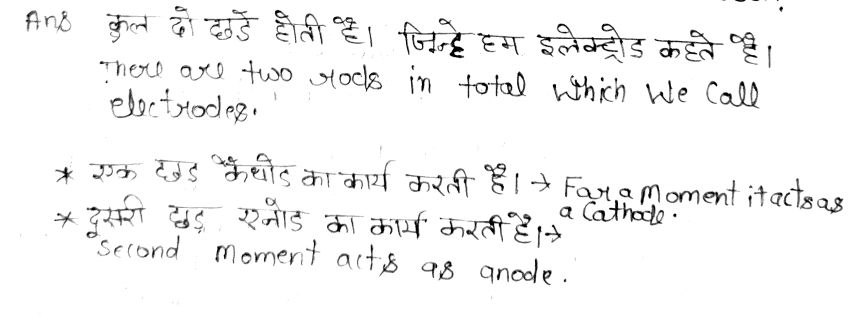 Ans कुल दो छडें होती है। जिन्हे हम इलेक्ट्रोड कहते है।
There are two rods in total which we call
electrodes.
* एक छड कैथोड का कार्य करती है। → For a moment it acts as
a Cathode.
* दूसरी छड़ एनोड का कार्य करती है। →
Second moment acts as anode.